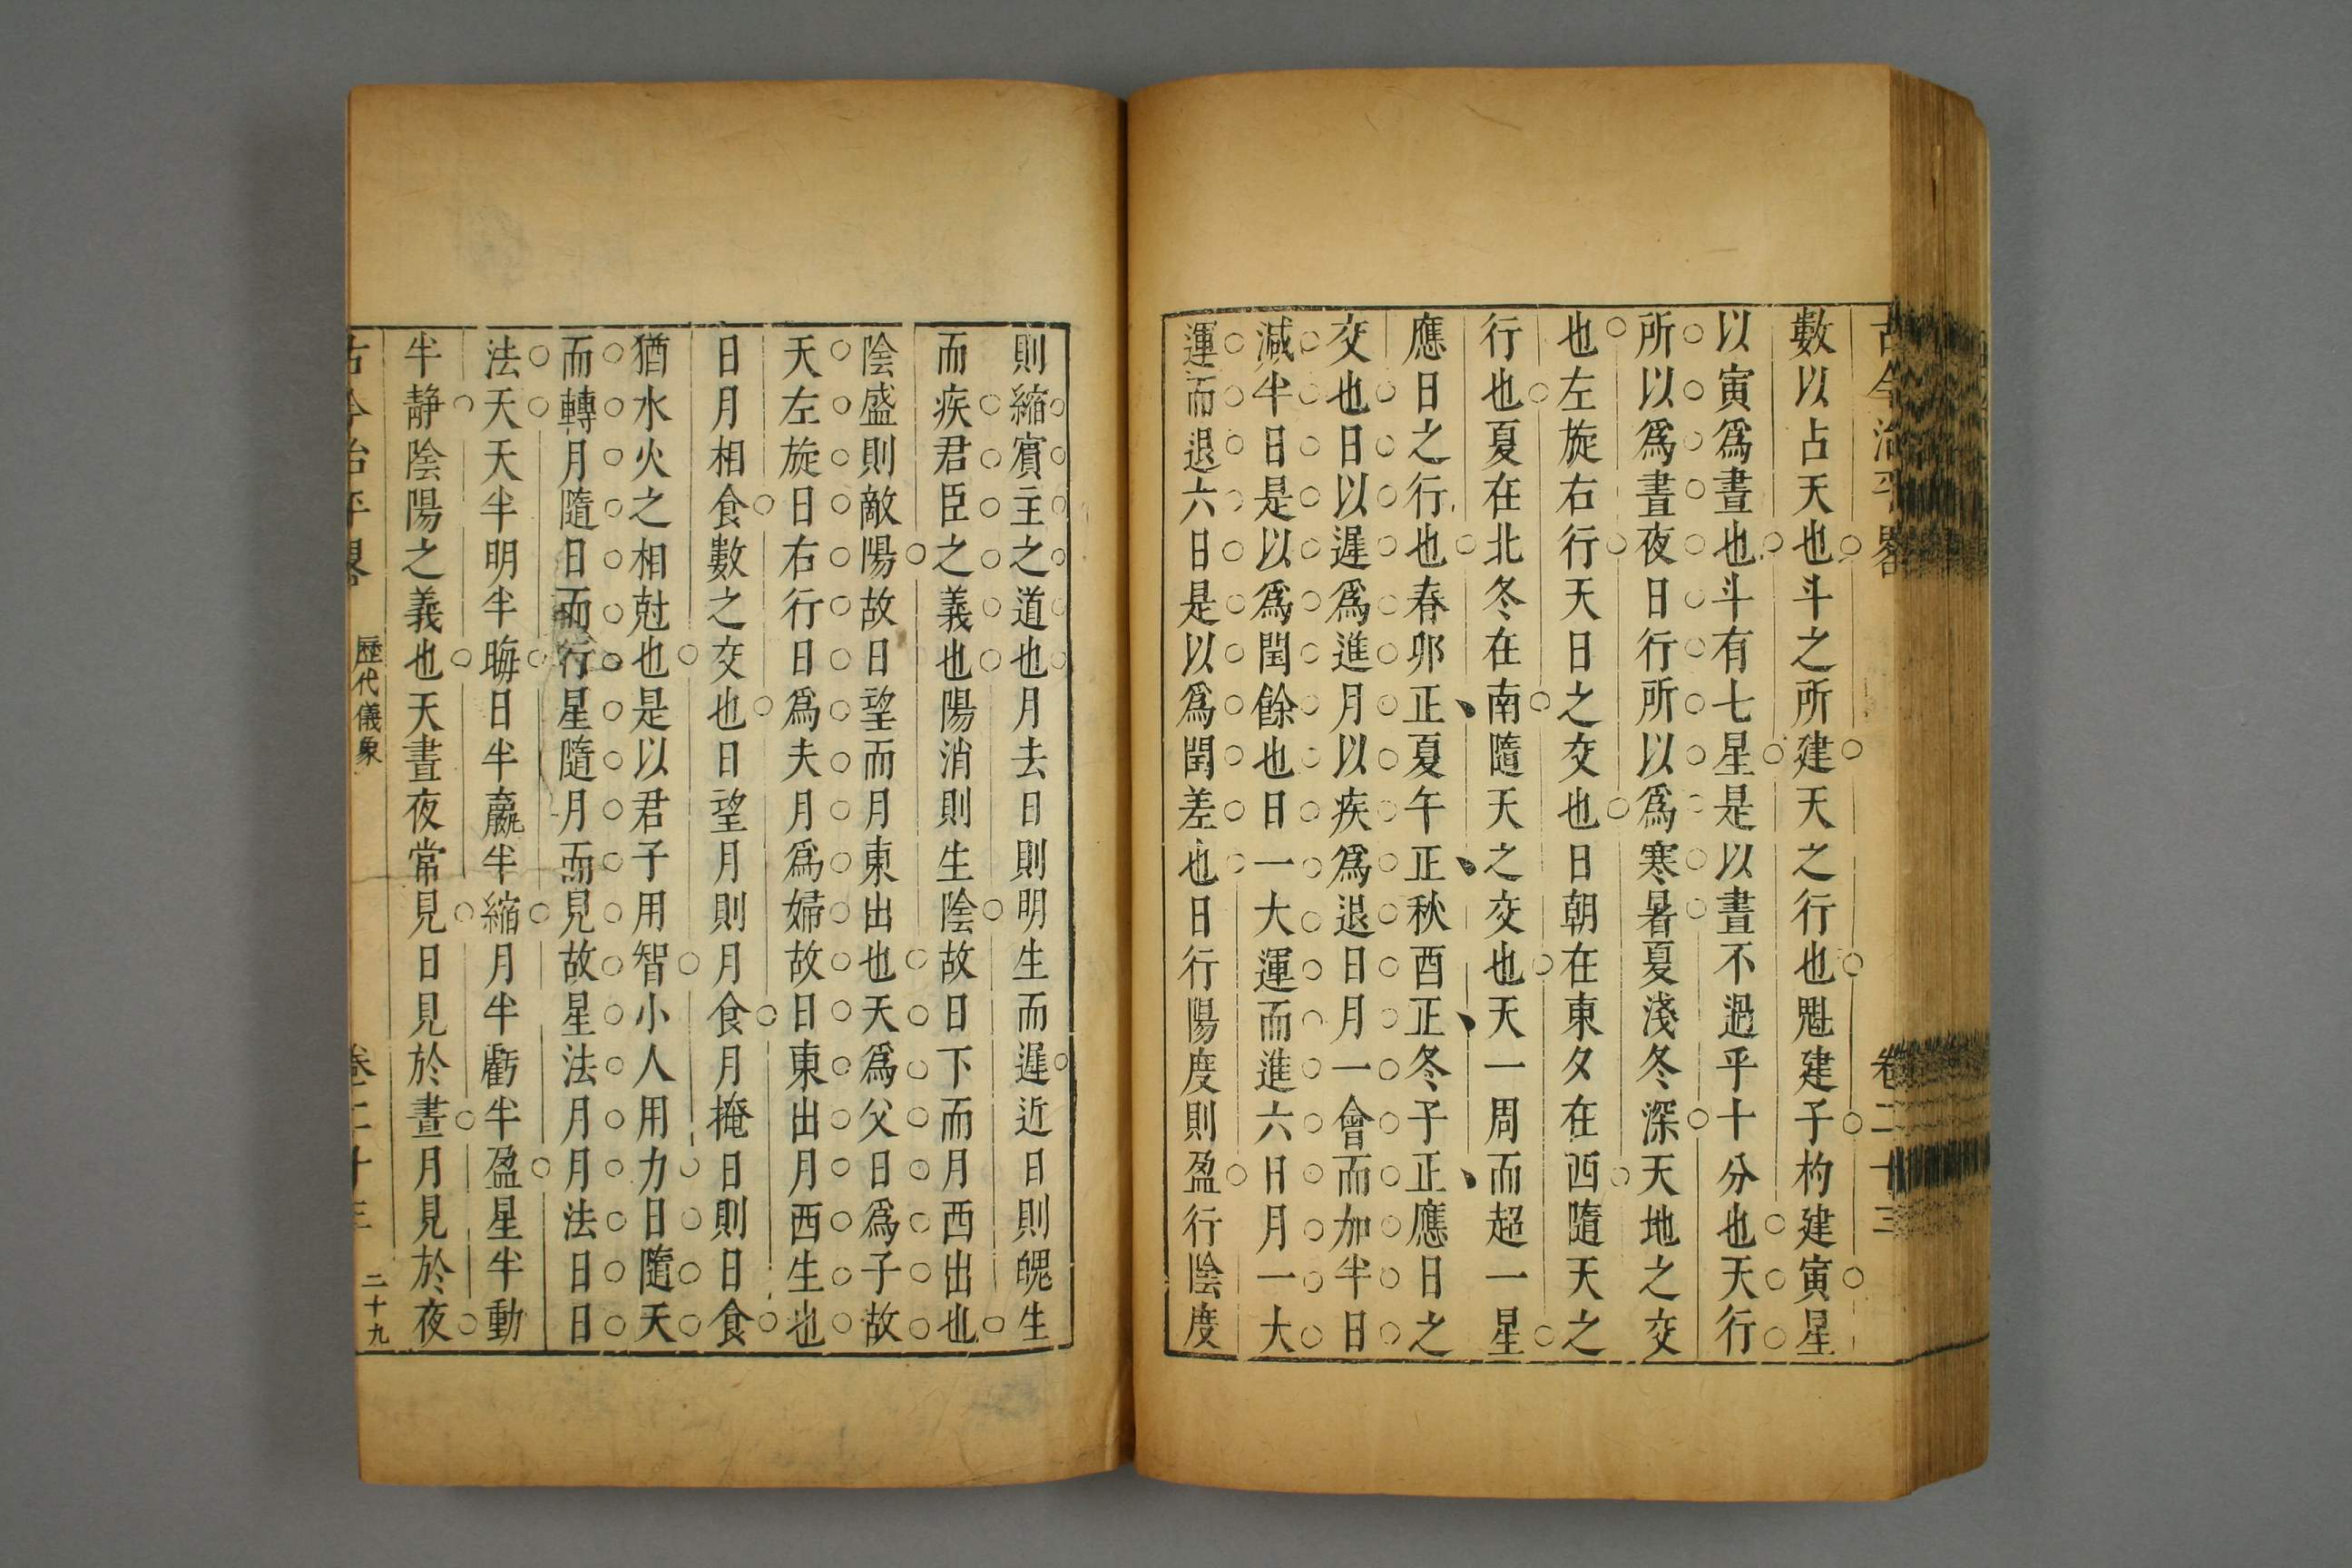 古今治平畧 卷二十三
數以占天也斗之所建天之行也魁建子杓建寅星
以寅爲晝也斗有七星是以晝不過乎十分也天行
所以爲晝夜日行所以爲寒暑夏淺冬深天地之交
也左旋右行天日之交也日朝在東夕在西隨天之
行也夏在北冬在南隨天之交也天一周而超一星
應日之行也春卯正夏午正秋酉正冬子正應日之
交也日以遲爲進月以疾爲退日月一會而加半日
減半日是以爲閏餘也日一大運而進六日月一大
運而退六日是以爲閏差也日行陽度則盈行陰度
則縮賓主之道也月去日則明生而遲近日則魄生
而疾君臣之義也陽消則生陰故日下而月西出也
陰盛則敵陽故日望而月東出也天爲父日爲子故
天左旋日右行日爲夫月爲婦故日東出月西生也
日月相食數之交也日望月則月食月掩日則日食
猶水火之相尅也是以君子用智小人用力日隨天
而轉月隨日而行星隨月而見故星法月月法日日
法天天半明半晦日半贏半縮月半虧半盈星半動
半靜陰陽之義也天晝夜常見日見於晝月見於夜
古今治平畧 歷代儀象 卷二十三 二十九